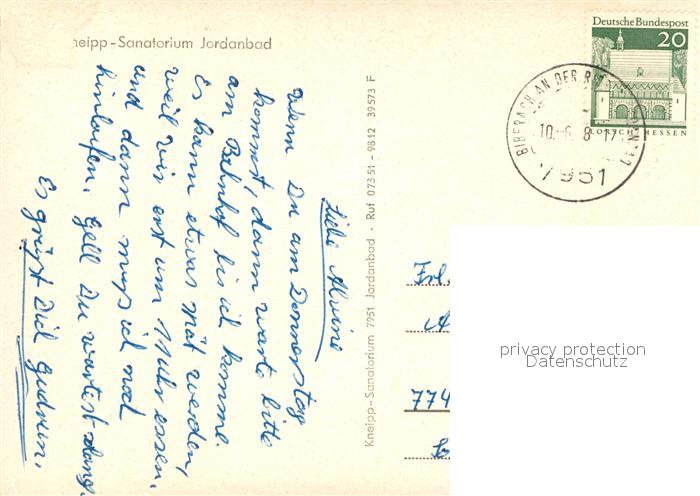 neipp-Sanatorium Jordanbad
Liebe Alwine
Wenn Du am Donnerstag
kommst, dann warte bitte
am Bahnhof bis ich komme.
Es kann etwas spät werden,
weil wir erst um 11 Uhr essen.
und dann muß ich noch
hinlaufen. Gell Du wartest
Es grüßt Dich Gudrun.
Kneipp-Sanatorium 7951 Jordanbad · Ruf 07351-9812 39573 F
Deutsche Bundespost
20
LORSCH HESSEN
BIBERACH AN DER
7951
Frl.
774
privacy protection
Datenschutz